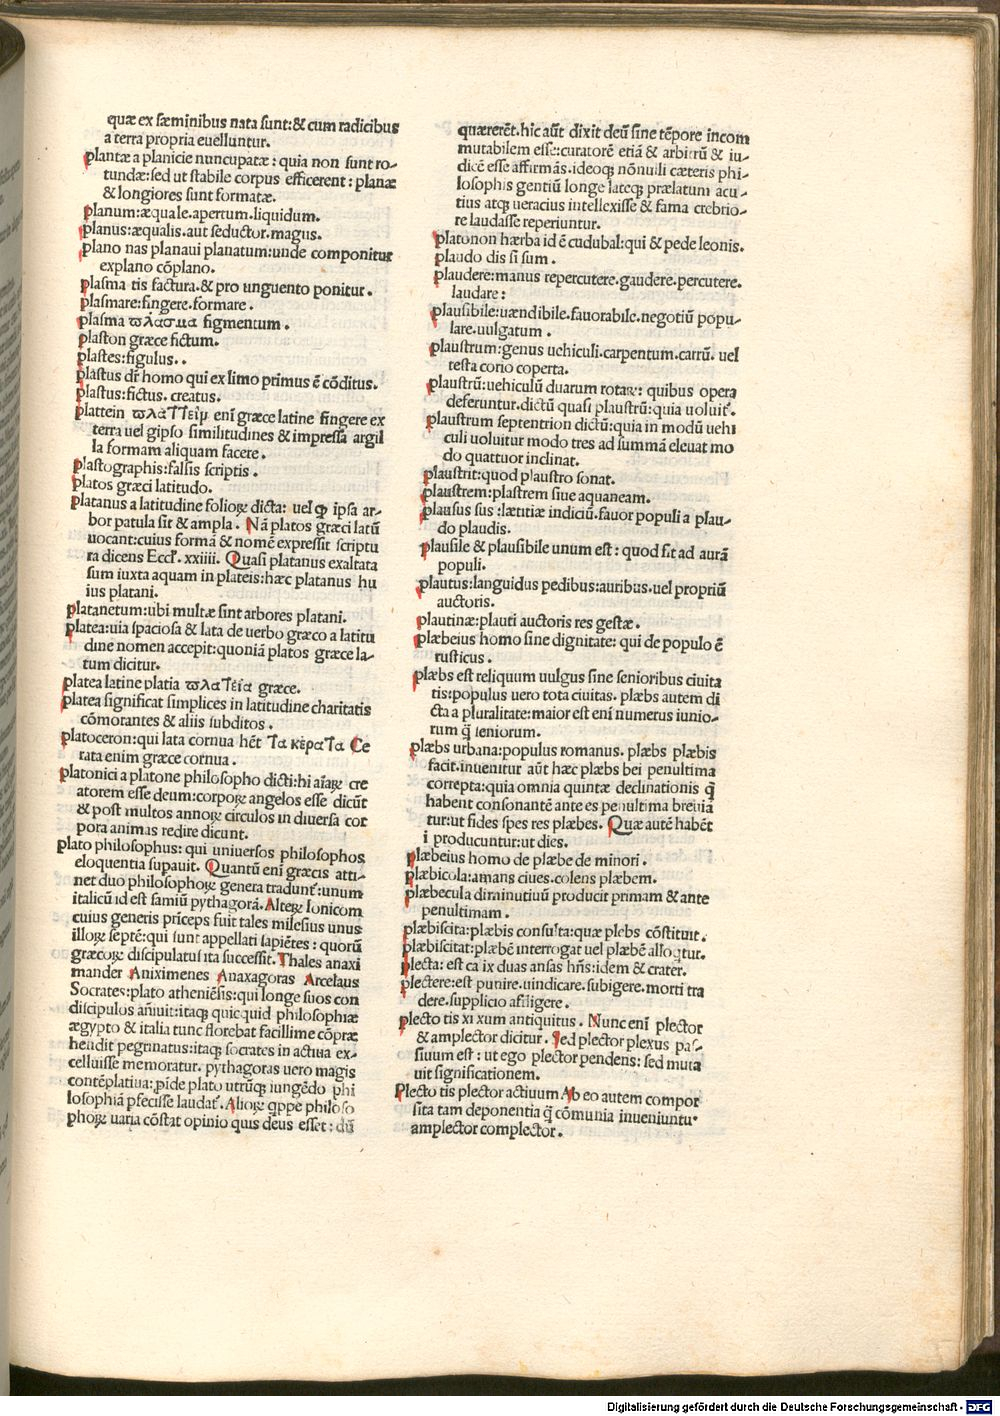 quæ ex sæminibus nata sunt:& cum radicibus
a terra propria euelluntur.
plantæ a planicie nuncupatæ: quia non sunt ro-
tundæ:sed ut stabile corpus efficerent: planæ
& longiores sunt formatæ.
planum:æquale.apertum.liquidum.
planus:æqualis.aut seductor.magus.
plano nas planaui planatum:unde componitur
explano cōplano.
plasma tis factura.& pro unguento ponitur.
plasmare:fingere.formare.
plasma ϖλάσμα figmentum.
plaston græce fictum.
plastes:figulus..
plastus dr̄ homo qui ex limo primus ē cōditus.
plastus:fictus. creatus.
plattein ϖλαττείμ eni græce latine fingere ex
terra uel gipso similitudines & impressa argil
la formam aliquam facere.
plastographis:falsis scriptis.
platos græci latitudo.
platanus a latitudine folioꝝ dicta: uel ꝙ ipsa ar-
bor patula sit & ampla. Nā platos græci latū
uocant:cuius formā & nomē expressit scriptu
ra dicens Eccl'. xxiiii. Quasi platanus exaltata
sum iuxta aquam in plateis:hæc platanus hu
ius platani.
platanetum:ubi multæ sint arbores platani.
platea:uia spaciosa & lata de uerbo græco a latitu
dine nomen accepit:quoniā platos græce la-
tum dicitur.
platea latine platia ϖλατεία græce.
platea significat simplices in latitudine charitatis
cōmorantes & aliis subditos.
platoceron:qui lata cornua hēt τα κέρατα Ce
rata enim græce cornua.
platonici a platone philosopho dicti:hi aīaꝝ cre
atorem esse deum:corpoꝝ angelos esse dicūt
& post multos annoꝝ circulos in diuersa cor
pora animas redire dicunt.
plato philosophus: qui uniuersos philosophos
eloquentia supauit. Quantū eni græcis atti-
net duo philosophoꝝ genera tradunt':unum
italicū id est samiū pythagorā. Alteꝝ Ionicom
cuius generis prīceps fuit tales milesius unus
illoꝝ septē:qui sunt appellati sapiētes: quorū
græcoꝝ discipulatus ita successit. Thales anaxi
mander Aniximenes Anaxagoras Arcelaus
Socrates:plato atheniēsis:qui longe suos con
discipulos añiuit:itaqꝫ quicquid philosophiæ
ægypto & italia tunc florebat facillime cōpræ
hendit pegrinatus:itaqꝫ socrates in actiua ex-
celluisse memoratur. pythagoras uero magis
contēplatiua:pide plato utrūqꝫ iungēdo phi
losophiā pfecisse laudat'. Alioꝝ q̄ppe philoso
phoꝝ uaria cōstat opinio quis deus esset: dū
quærerēt.hic aūt dixit deū sine tēpore incom
mutabilem esse:curatorē etiā & arbitrū & iu-
dicē esse affirmās.ideoqꝫ nōnulli cæteris phi-
losophis gentiū longe lateqꝫ prælatum acu-
tius atqꝫ ueracius intellexisse & fama crebrio-
re laudasse reperiuntur.
platonon hærba id ē cudubal:qui & pede leonis.
plaudo dis si sum.
plaudere:manus repercutere.gaudere.percutere.
laudare:
plausibile:uændibile.fauorabile.negotiū popu-
lare.uulgatum.
plaustrum:genus uehiculi.carpentum.carrū. uel
testa corio coperta.
plaustrū:uehiculū duarum rotaꝝ: quibus opera
deferuntur.dictū quasi plaustrū:quia uoluit'.
plaustrum septentrion dictū:quia in modū uehi
culi uoluitur modo tres ad summā eleuat mo
do quattuor inclinat.
plaustrit:quod plaustro sonat.
plaustrem:plastrem siue aquaneam.
plausus sus :lætitiæ indiciū.fauor populi a plau-
do plaudis.
plausile & plausibile unum est: quod sit ad aurā
populi.
plautus:languidus pedibus:auribus.uel propriū
auctoris.
plautinæ:plauti auctoris res gestæ.
plæbeius homo sine dignitate: qui de populo ē
rusticus.
plæbs est reliquum uulgus sine senioribus ciuita
tis:populus uero tota ciuitas. plæbs autem di
cta a pluralitate:maior est eni numerus iunio-
rum q̄ seniorum.
plæbs urbana:populus romanus. plæbs plæbis
facit.inuenitur aūt hæc plæbs bei penultima
correpta:quia omnia quintæ declinationis q̄
habent consonantē ante es penultima breuia
tur:ut fides spes res plæbes. Quæ autē habēt
i producuntur:ut dies.
plæbeius homo de plæbe de minori.
plæbicola:amans ciues.colens plæbem.
plæbecula diminutiuū producit primam & ante
penultimam.
plæbiscita:plæbis consulta:quæ plebs cōstituit.
plæbiscitat:plæbē interrogat uel plæbē alloqtur.
plecta: est ca ix duas ansas hn̄s:idem & crater.
plectere:est punire.uindicare.subigere.morti tra
dere.supplicio affligere.
plecto tis xi xum antiquitus. Nunc eni plector
& amplector dicitur. Sed plector plexus pas-
siuum est: ut ego plector pendens: sed muta
uit significationem.
Plecto tis plector actiuum Ab eo autem compor
sita tam deponentia q̄ cōmunia inueniuntu.
amplector complector.
Digitalisierung gefördert durch die Deutsche Forschungsgemeinschaft - DFG